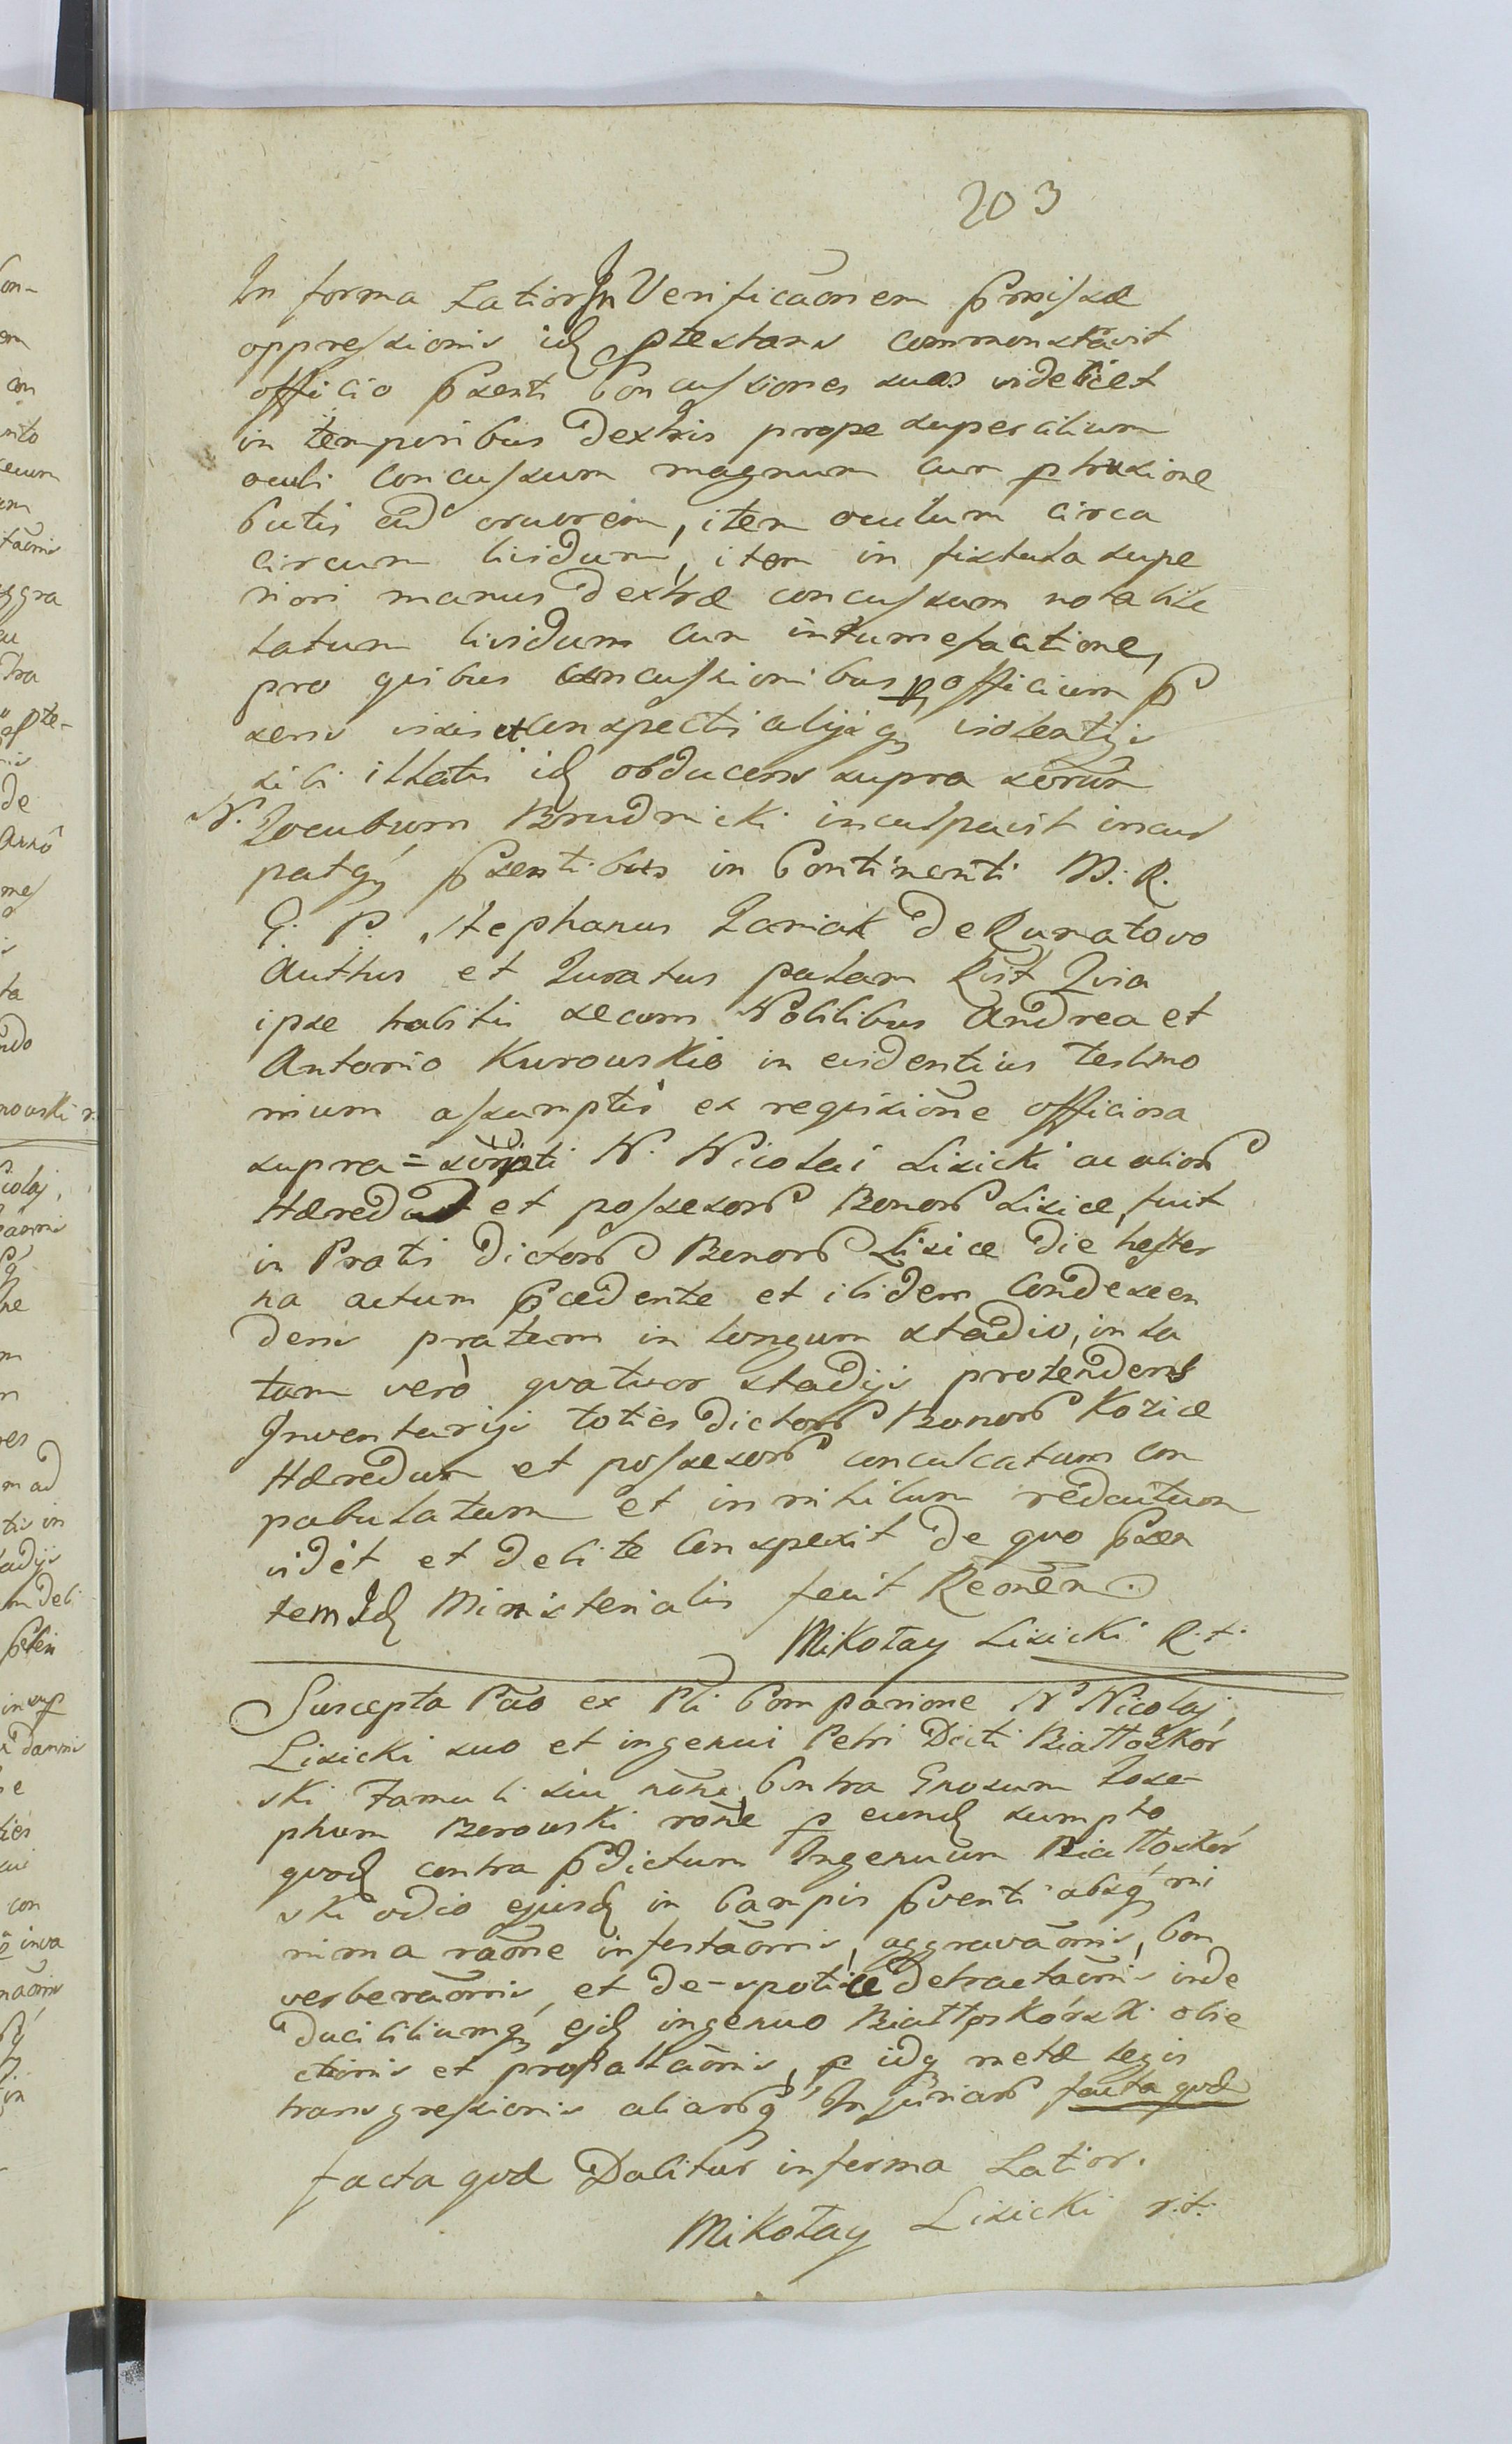 203
In forma Latiori In Verificaõnem pmissæ
oppressionis idq ptestans commonstravit
officio psenti Concussiones suas videlicet
in temporibus dextris prope supercilium
oculi concussum magnum cum ptrusione
Cutis ad cruorem, item oculum circa
circum lividum, item in fistula supe
riori manus dextræ concussum notabile
latum lividum cum intumefactione,
pro quibus concussionibus p officium p
sens visis et conspectis alijsq violentijs
sibi illatis idq obducens supra scrum
N. Jocubum Brudnicki inculpavit incul
patq psentibus in Continenti M. R.
G. P. Stephanus Janiak de Kunatowo
Authus et Juratus palam Rvit Quia
ipse habitis secum Nobilibus Andrea et
Antonio Kurowskie in evidentius testimo
nium assumptis ex requisitione officiosa
supra=scripti N. Nicolai Lisicki ac alior
Hæredum et possessor Bonor Lisice, fuit
in Pratis dictor Bonor Lisice die hester
na actum pcedente et ibidem Condescen
dens pratum in longum stadio, in la
tum verò quatuor stadijs protendens
Inventarijs toties dictor Bonor Kozice
Hæredum et possessor conculcatum con
pabulatum et in nihilum redactum
vidèt et debite Conspexit de quo psen
tem Idq Ministerialis fecit Reõnem.
Mikołay Lisicki R. t.
Suscepta Pão ex Pti Comparione N. Nicolaj
Lisicki suo et ingenui Petri Dicti Białłoskór
ski Famuli sui nõne, Contra Gnosum Jose-
phum Borowski rõne p eundq sumpto
quodq contra pdictum Ingenuum Białłoskór
ski odio ejusdq in Campis pventi absq mi
nima raõne infestaõnis, aggravaõnis, Con
verberaõnis, et de-spoticæ detractaõnis inde
ducibiliumq ejdq ingenuo Białłoskórski obie
ctionis et prostallaõnis, p idq metæ legis
transgressionis aliarq Injuriar facta quæ
facta quæ Dabitur in forma Latior.
Mikołay Lisicki r. t.